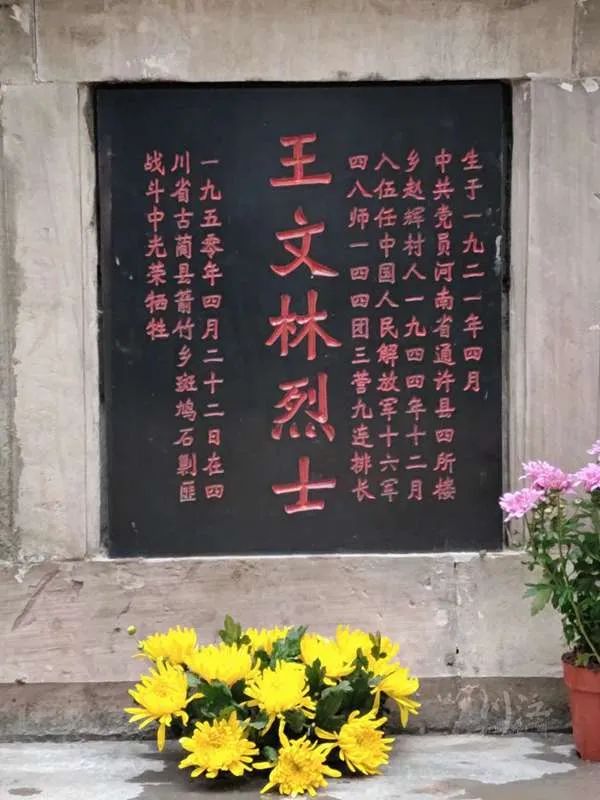 生于一九二一年四月
中共党员河南省通许县四所楼
乡赵辉村人一九四四年十二月
入伍任中国人民解放军十六军
四八师一四四团三营九连排长
王文林烈士
一九五零年四月二十二日在四
川省古蔺县箭竹乡斑鸠石剿匪
战斗中光荣牺牲